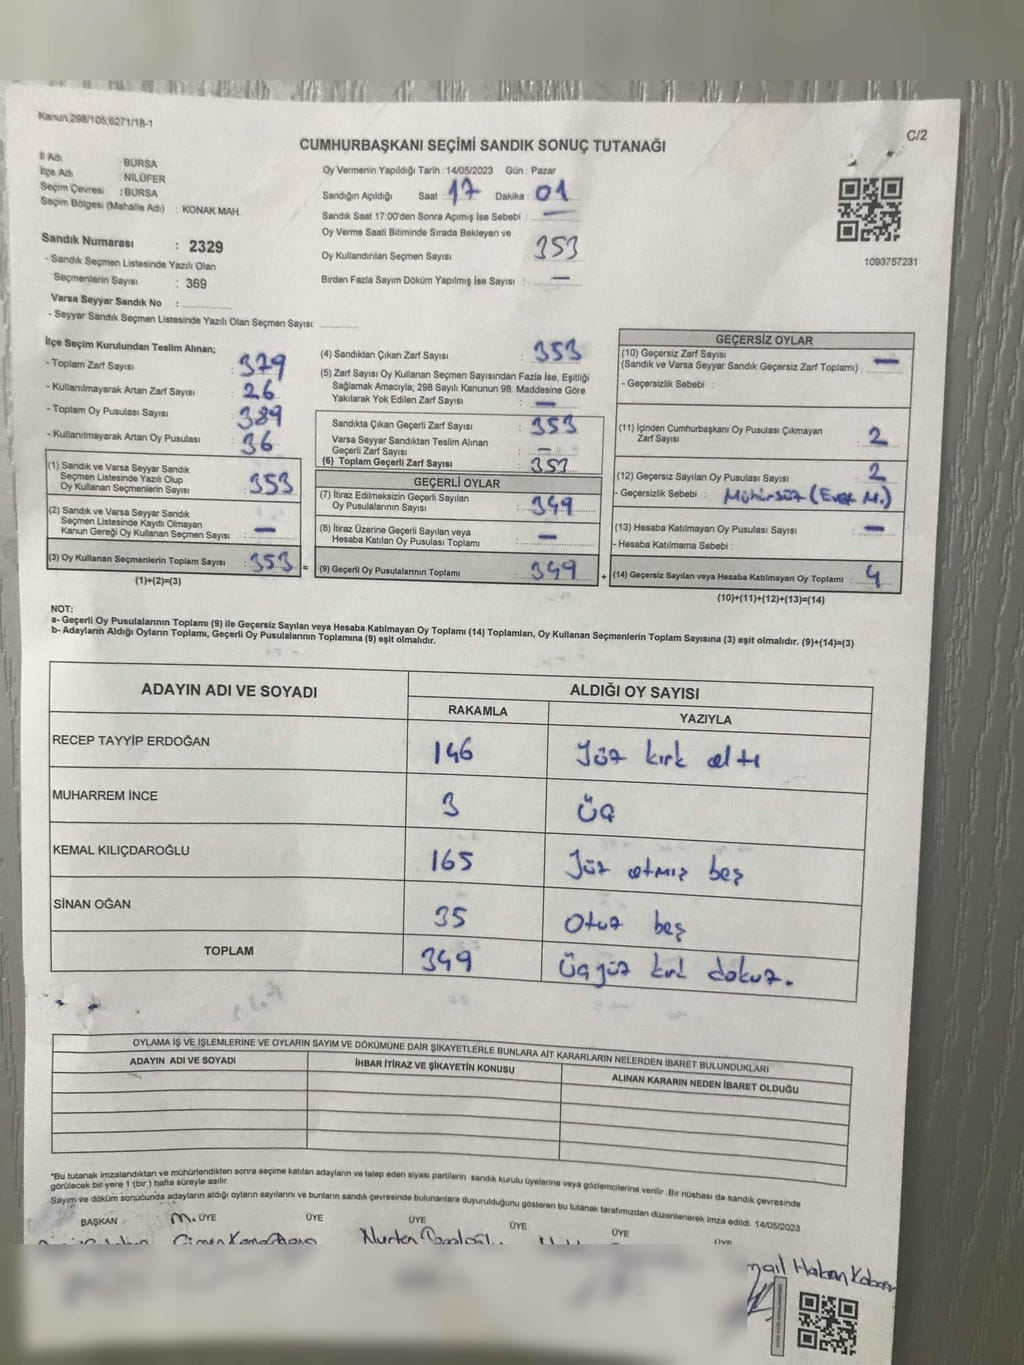 Kanun,298/105,6271/18-1
C/2
CUMHURBAŞKANI SEÇİMİ SANDIK SONUÇ TUTANAĞI
İl Adı : BURSA
İlçe Adı : NİLÜFER
Seçim Çevresi : BURSA
Seçim Bölgesi (Mahalle Adı) : KONAK MAH.
Sandık Numarası : 2329
- Sandık Seçmen Listesinde Yazılı Olan
Seçmenlerin Sayısı : 369
Varsa Seyyar Sandık No :
- Seyyar Sandık Seçmen Listesinde Yazılı Olan Seçmen Sayısı:
Oy Vermenin Yapıldığı Tarih : 14/05/2023 Gün : Pazar
Sandığın Açıldığı Saat 17 Dakika : 01
Sandık Saat 17:00'den Sonra Açımış İse Sebebi : —
Oy Verme Saati Bitiminde Sırada Bekleyen ve
Oy Kullandırılan Seçmen Sayısı : 353
Birden Fazla Sayım Döküm Yapılmış İse Sayısı : —
1093757231
İlçe Seçim Kurulundan Teslim Alınan;
- Toplam Zarf Sayısı : 379
- Kullanılmayarak Artan Zarf Sayısı : 26
- Toplam Oy Pusulası Sayısı : 389
- Kullanılmayarak Artan Oy Pusulası : 36
(1) Sandık ve Varsa Seyyar Sandık
Seçmen Listesinde Yazılı Olup
Oy Kullanan Seçmenlerin Sayısı : 353
(2) Sandık ve Varsa Seyyar Sandık
Seçmen Listesinde Kayıtlı Olmayan
Kanun Gereği Oy Kullanan Seçmen Sayısı : —
(3) Oy Kullanan Seçmenlerin Toplam Sayısı : 353 =
(1)+(2)=(3)
(4) Sandıktan Çıkan Zarf Sayısı : 353
(5) Zarf Sayısı Oy Kullanan Seçmen Sayısından Fazla İse, Eşitliği
Sağlamak Amacıyla; 298 Sayılı Kanunun 98. Maddesine Göre
Yakılarak Yok Edilen Zarf Sayısı : —
Sandıkta Çıkan Geçerli Zarf Sayısı : 353
Varsa Seyyar Sandıktan Teslim Alınan
Geçerli Zarf Sayısı : —
(6) Toplam Geçerli Zarf Sayısı : 353
GEÇERLİ OYLAR
(7) İtiraz Edilmeksizin Geçerli Sayılan
Oy Pusulalarının Sayısı : 349
(8) İtiraz Üzerine Geçerli Sayılan veya
Hesaba Katılan Oy Pusulası Toplamı : —
(9) Geçerli Oy Pusulalarının Toplamı : 349 +
GEÇERSİZ OYLAR
(10) Geçersiz Zarf Sayısı
(Sandık ve Varsa Seyyar Sandık Geçersiz Zarf Toplamı) : —
- Geçersizlik Sebebi :
(11) İçinden Cumhurbaşkanı Oy Pusulası Çıkmayan
Zarf Sayısı : 2
(12) Geçersiz Sayılan Oy Pusulası Sayısı : 2
- Geçersizlik Sebebi : Mühürsüz (Evet M.)
(13) Hesaba Katılmayan Oy Pusulası Sayısı : —
- Hesaba Katılmama Sebebi :
(14) Geçersiz Sayılan veya Hesaba Katılmayan Oy Toplamı : 4
(10)+(11)+(12)+(13)=(14)
NOT:
a- Geçerli Oy Pusulalarının Toplamı (9) ile Geçersiz Sayılan veya Hesaba Katılmayan Oy Toplamı (14) Toplamları, Oy Kullanan Seçmenlerin Toplam Sayısına (3) eşit olmalıdır. (9)+(14)=(3)
b- Adayların Aldığı Oyların Toplamı, Geçerli Oy Pusulalarının Toplamına (9) eşit olmalıdır.
ADAYIN ADI VE SOYADI ALDIĞI OY SAYISI
RAKAMLA YAZIYLA
RECEP TAYYİP ERDOĞAN 146 Yüz kırk altı
MUHARREM İNCE 3 Üç
KEMAL KILIÇDAROĞLU 165 Yüz atmış beş
SİNAN OĞAN 35 Otuz beş
TOPLAM 349 Üçyüz kırk dokuz.
OYLAMA İŞ VE İŞLEMLERİNE VE OYLARIN SAYIM VE DÖKÜMÜNE DAİR ŞİKAYETLERLE BUNLARA AİT KARARLARIN NELERDEN İBARET BULUNDUKLARI
ADAYIN ADI VE SOYADI İHBAR İTİRAZ VE ŞİKAYETİN KONUSU ALINAN KARARIN NEDEN İBARET OLDUĞU
*Bu tutanak imzalandıktan ve mühürlendikten sonra seçime katılan adayların ve talep eden siyasi partilerin sandık kurulu üyelerine veya gözlemcilerine verilir. Bir nüshası da sandık çevresinde
görülecek bir yere 1 (bir ) hafta süreyle asılır.
Sayım ve döküm sonucunda adayların aldığı oyların sayılarını ve bunların sandık çevresinde bulunanlara duyurulduğunu gösteren bu tutanak tarafımızdan düzenlenerek imza edildi. 14/05/2023
BAŞKAN M. ÜYE ÜYE ÜYE ÜYE ÜYE ÜYE
Nurten
Hakan